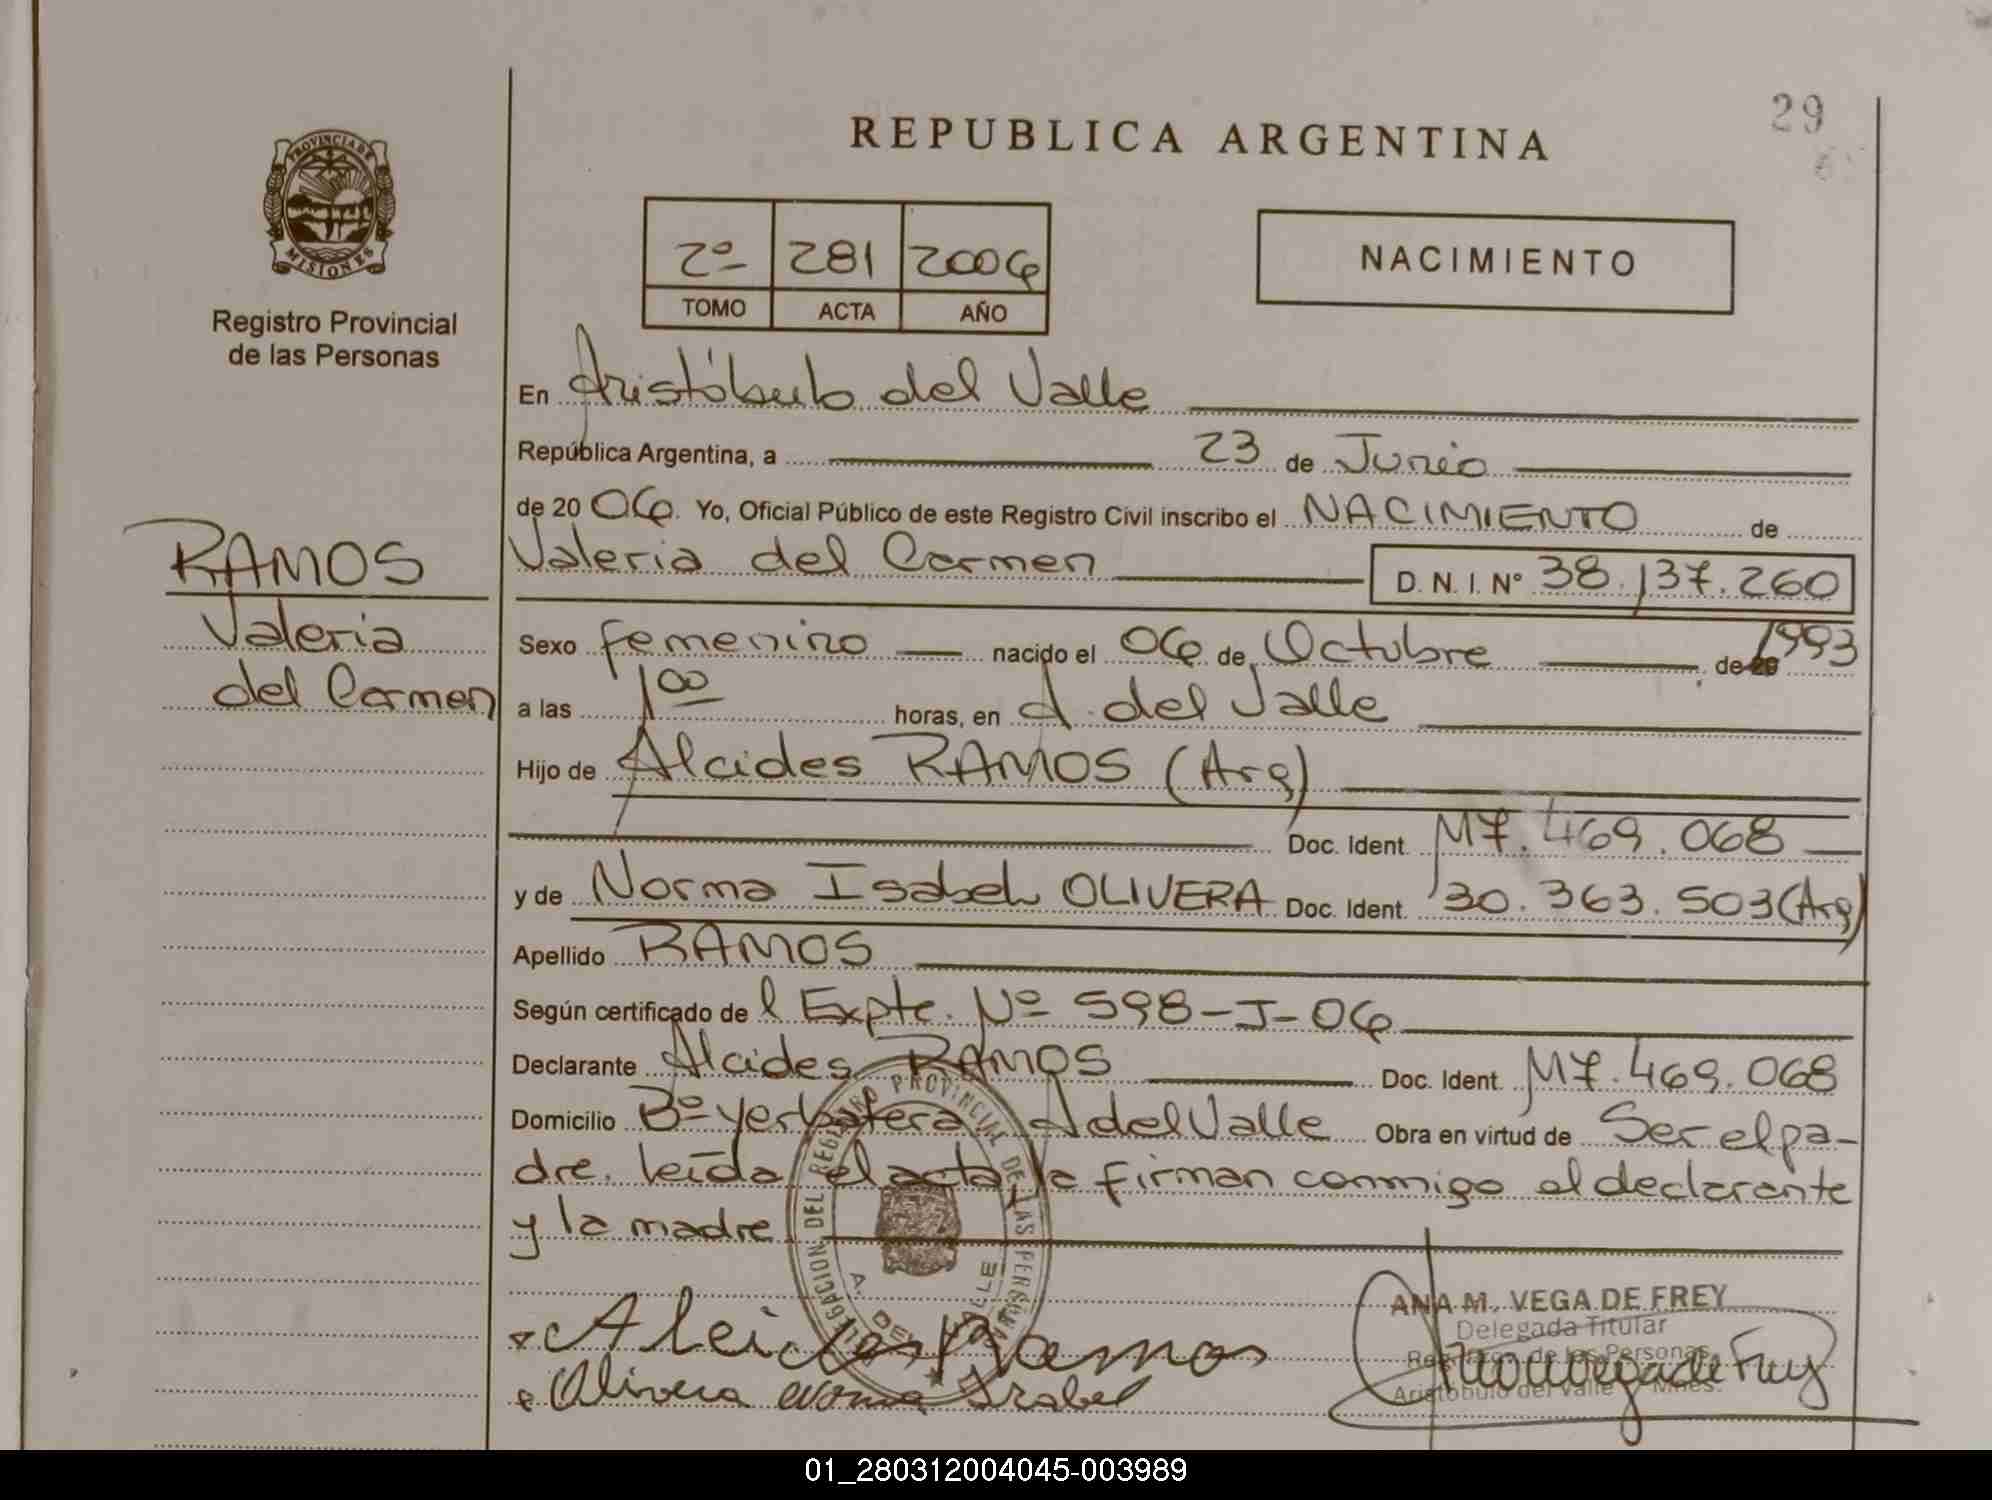 29
REPUBLICA ARGENTINA
PROVINCIA DE
MISIONES
Registro Provincial
de las Personas
2º 281 2006
TOMO ACTA AÑO
NACIMIENTO
En Aristóbulo del Valle
República Argentina, a 23 de Junio
de 20 06. Yo, Oficial Público de este Registro Civil inscribo el NACIMIENTO de
RAMOS
Valeria
del Carmen
Valeria del Carmen D. N. I. Nº 38.137.260
Sexo femenino nacido el 06 de Octubre de 20 1993
a las 1 00 horas, en A. del Valle
Hijo de Alcides RAMOS (Arg)
Doc. Ident. M7.469.068
y de Norma Isabel OLIVERA Doc. Ident. 30.363.503 (Arg)
Apellido RAMOS
Según certificado de l Expte. Nº 598-J-06
Declarante Alcides RAMOS Doc. Ident. M7.469.068
Domicilio Bº Yerbatera A del Valle Obra en virtud de Ser el pa-
dre. leída el acta, la firman conmigo el declarante
y la madre
DELEGACION DEL REGISTRO PROVINCIAL DE LAS PERSONAS
A. DEL VALLE
Alcides Ramos
Olivera Norma Isabel
ANA M. VEGA DE FREY
Delegada Titular
Registro de las Personas
Aristóbulo del Valle - Mnes.
01_280312004045-003989